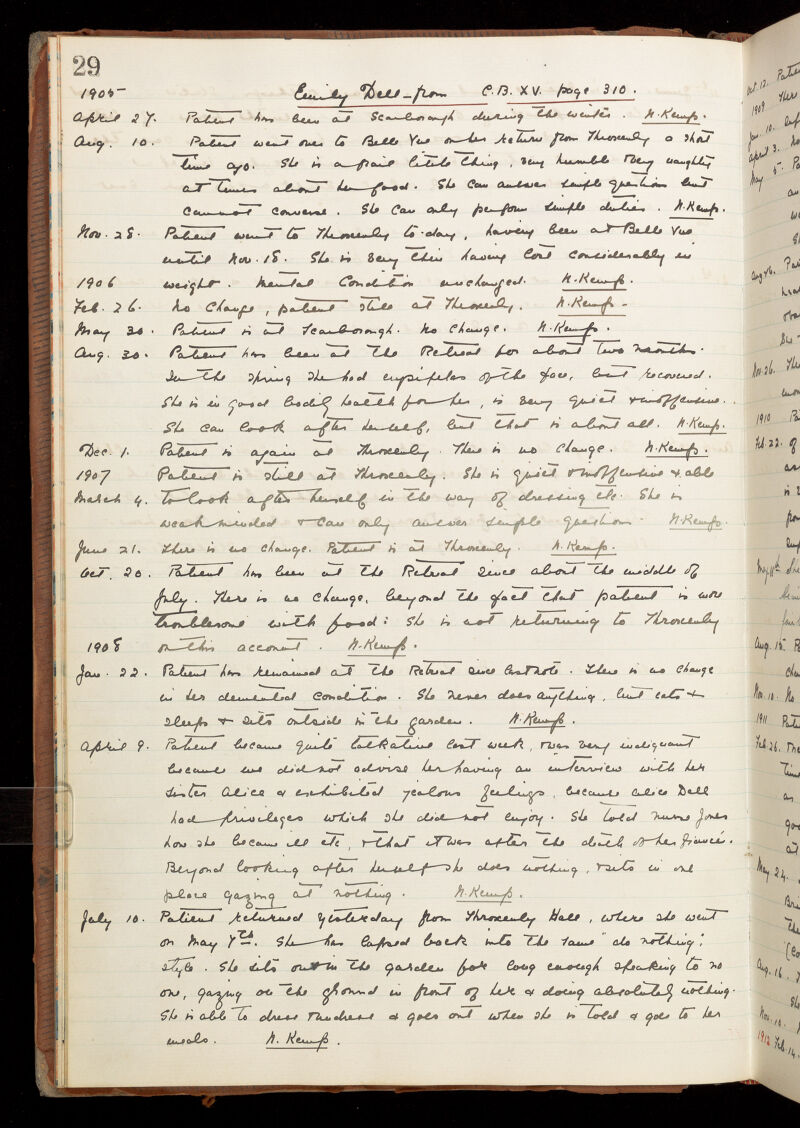 29
1905 Emily Dell - from C.B. XV. page 310.
April 27. Patient has been at Scarborough during the winter. N. Kemp.
Aug. 10. Patient went over to Belle Vue on her return from Throxenby a short
time ago. She is a frail little thing, very humble & very naughty
at times about her food. She can answer simple questions but
cannot converse. She can only perform simple duties. N. Kemp.
Nov. 28. Patient went to Throxenby to-day, having been at Belle Vue
until Nov. 18. She is very thin having lost considerably in
1906 weight. Mental Condition unchanged. N. Kemp.
Feb. 26. No Change, patient still at Throxenby. N. Kemp.
May 30. Patient is at Scarborough. No change. N. Kemp.
Aug. 30. Patient has been at the Retreat for about two months.
In the Spring she had erysipelas of the face, but recovered.
She is in good bodily health for her, is very quiet & inoffensive.
She can look after herself, but that is about all. N. Kemp.
Dec. 1. Patient is again at Throxenby. There is no change. N. Kemp.
1907 Patient is still at Throxenby. She is quiet & inoffensive & able
March 4. to look after herself in the way of dressing etc. She is
weak minded & can only answer simple questions. N. Kemp.
June 21. There is no change. Patient is at Throxenby. N. Kemp.
Oct. 20. Patient has been at the Retreat since about the middle of
July. There is no change, beyond the fact that patient is more
troublesome with food: she is not returning to Throxenby
1908 on this account. N. Kemp.
Jan. 22. Patient has remained at the Retreat since last note. There is no change
in her demented condition. She never does anything, but eats &
sleeps & sits outside in the garden. N. Kemp.
April 9. Patient became quite talkative last week, & was very indignant
because we did not advise her having an interview with her
sister Alice & exhibited jealous feelings, because Alice Dell
had privileges which she did not enjoy. She told nurse Jones
how she became ill etc, & that it was after the death of her fiancé.
Beyond looking after herself she does nothing, & sits in one
place gazing at nothing. N. Kemp.
July 10. Patient returned yesterday from Throxenby Hall, where she went
on May 7th. She has lapsed back into the same "do nothing"
style. She sits out in the garden for long enough speaking to no
one, gazing on the ground in front of her & doing absolutely nothing.
She is able to dress & undress & goes out when she is told & goes to her
meals. N. Kemp.